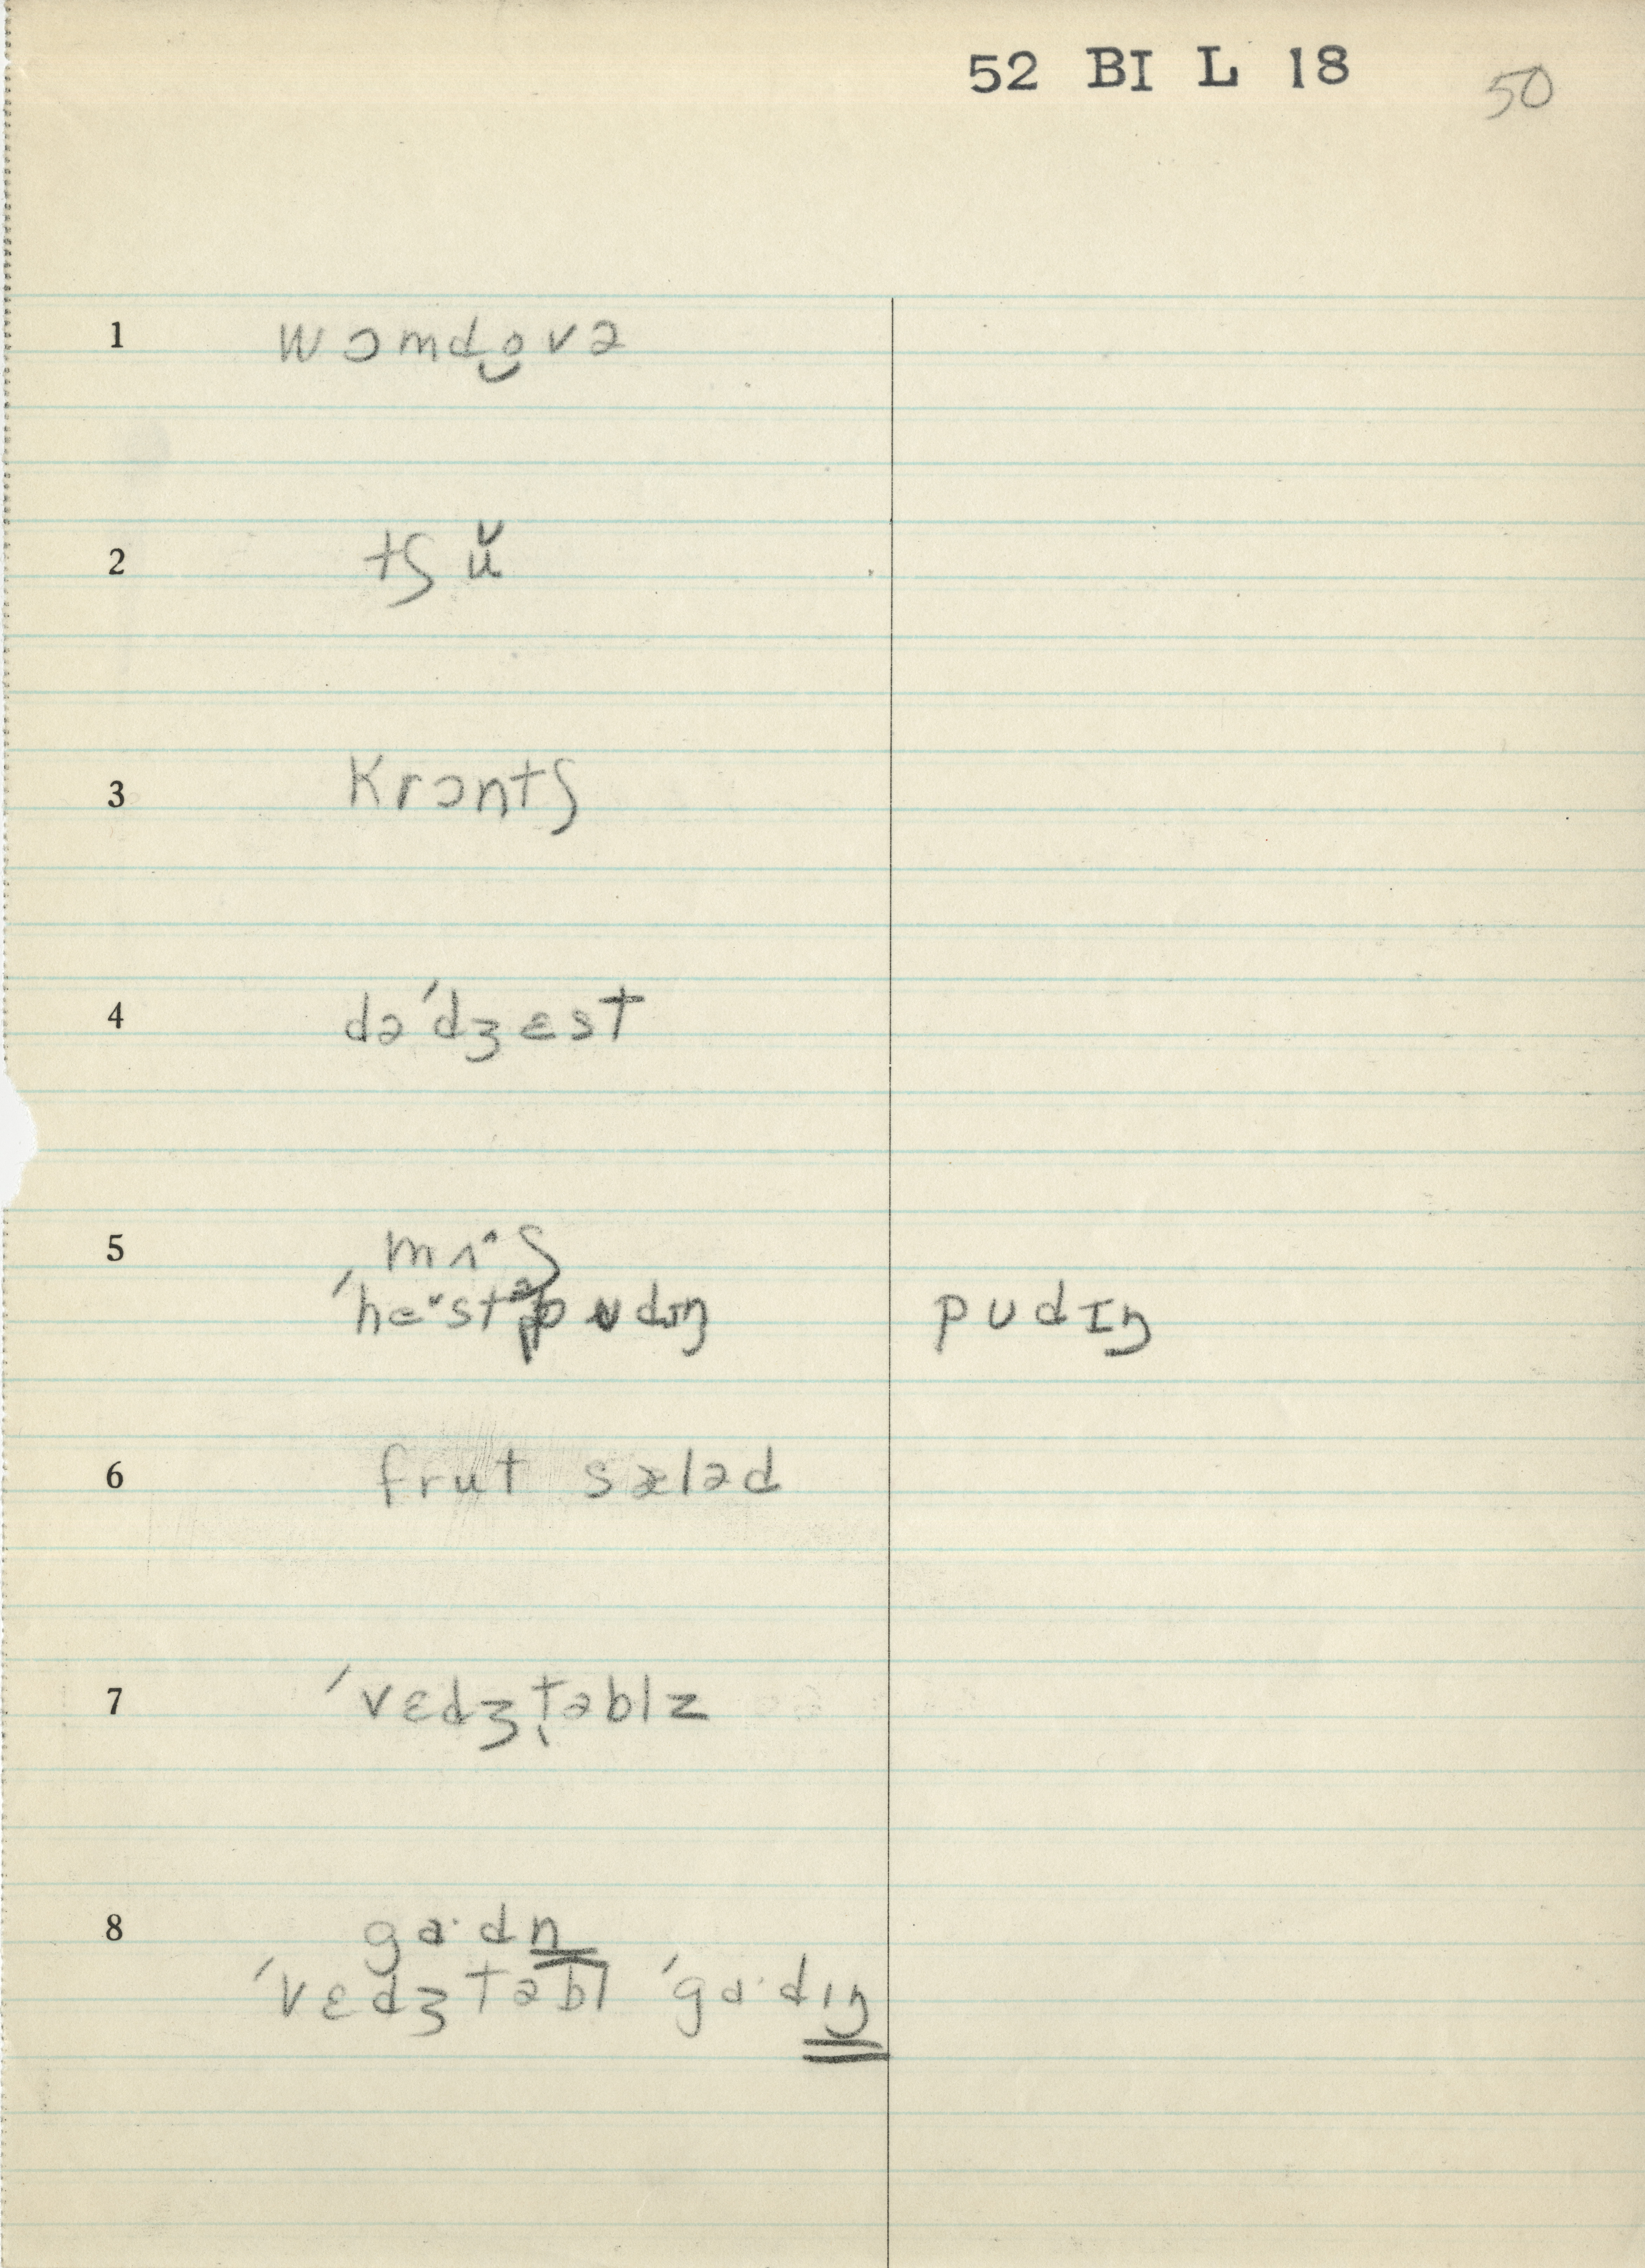 52 BI L 18 50
1 wɔmdo̮və
2 tʃ ŭ
3 krɔntʃ
4 də'dʒɛst
5 mʌˑʃ
'heˇstəpʊdɪŋ pʊdɪŋ
6 frut sæləd
7 'vɛdʒt̜əblz
8 gaˑdn
'vɛdʒtəbl 'gaˑdɪŋ